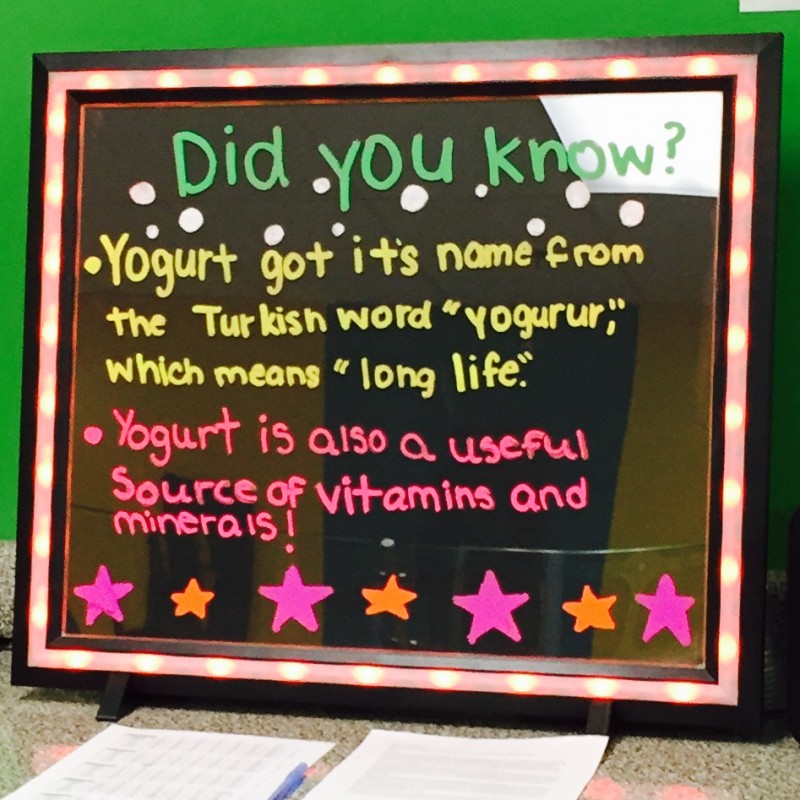 Did you know?
•Yogurt got it's name from
the Turkish word "yogurur,"
which means "long life."
•Yogurt is also a useful
source of vitamins and
minerals!